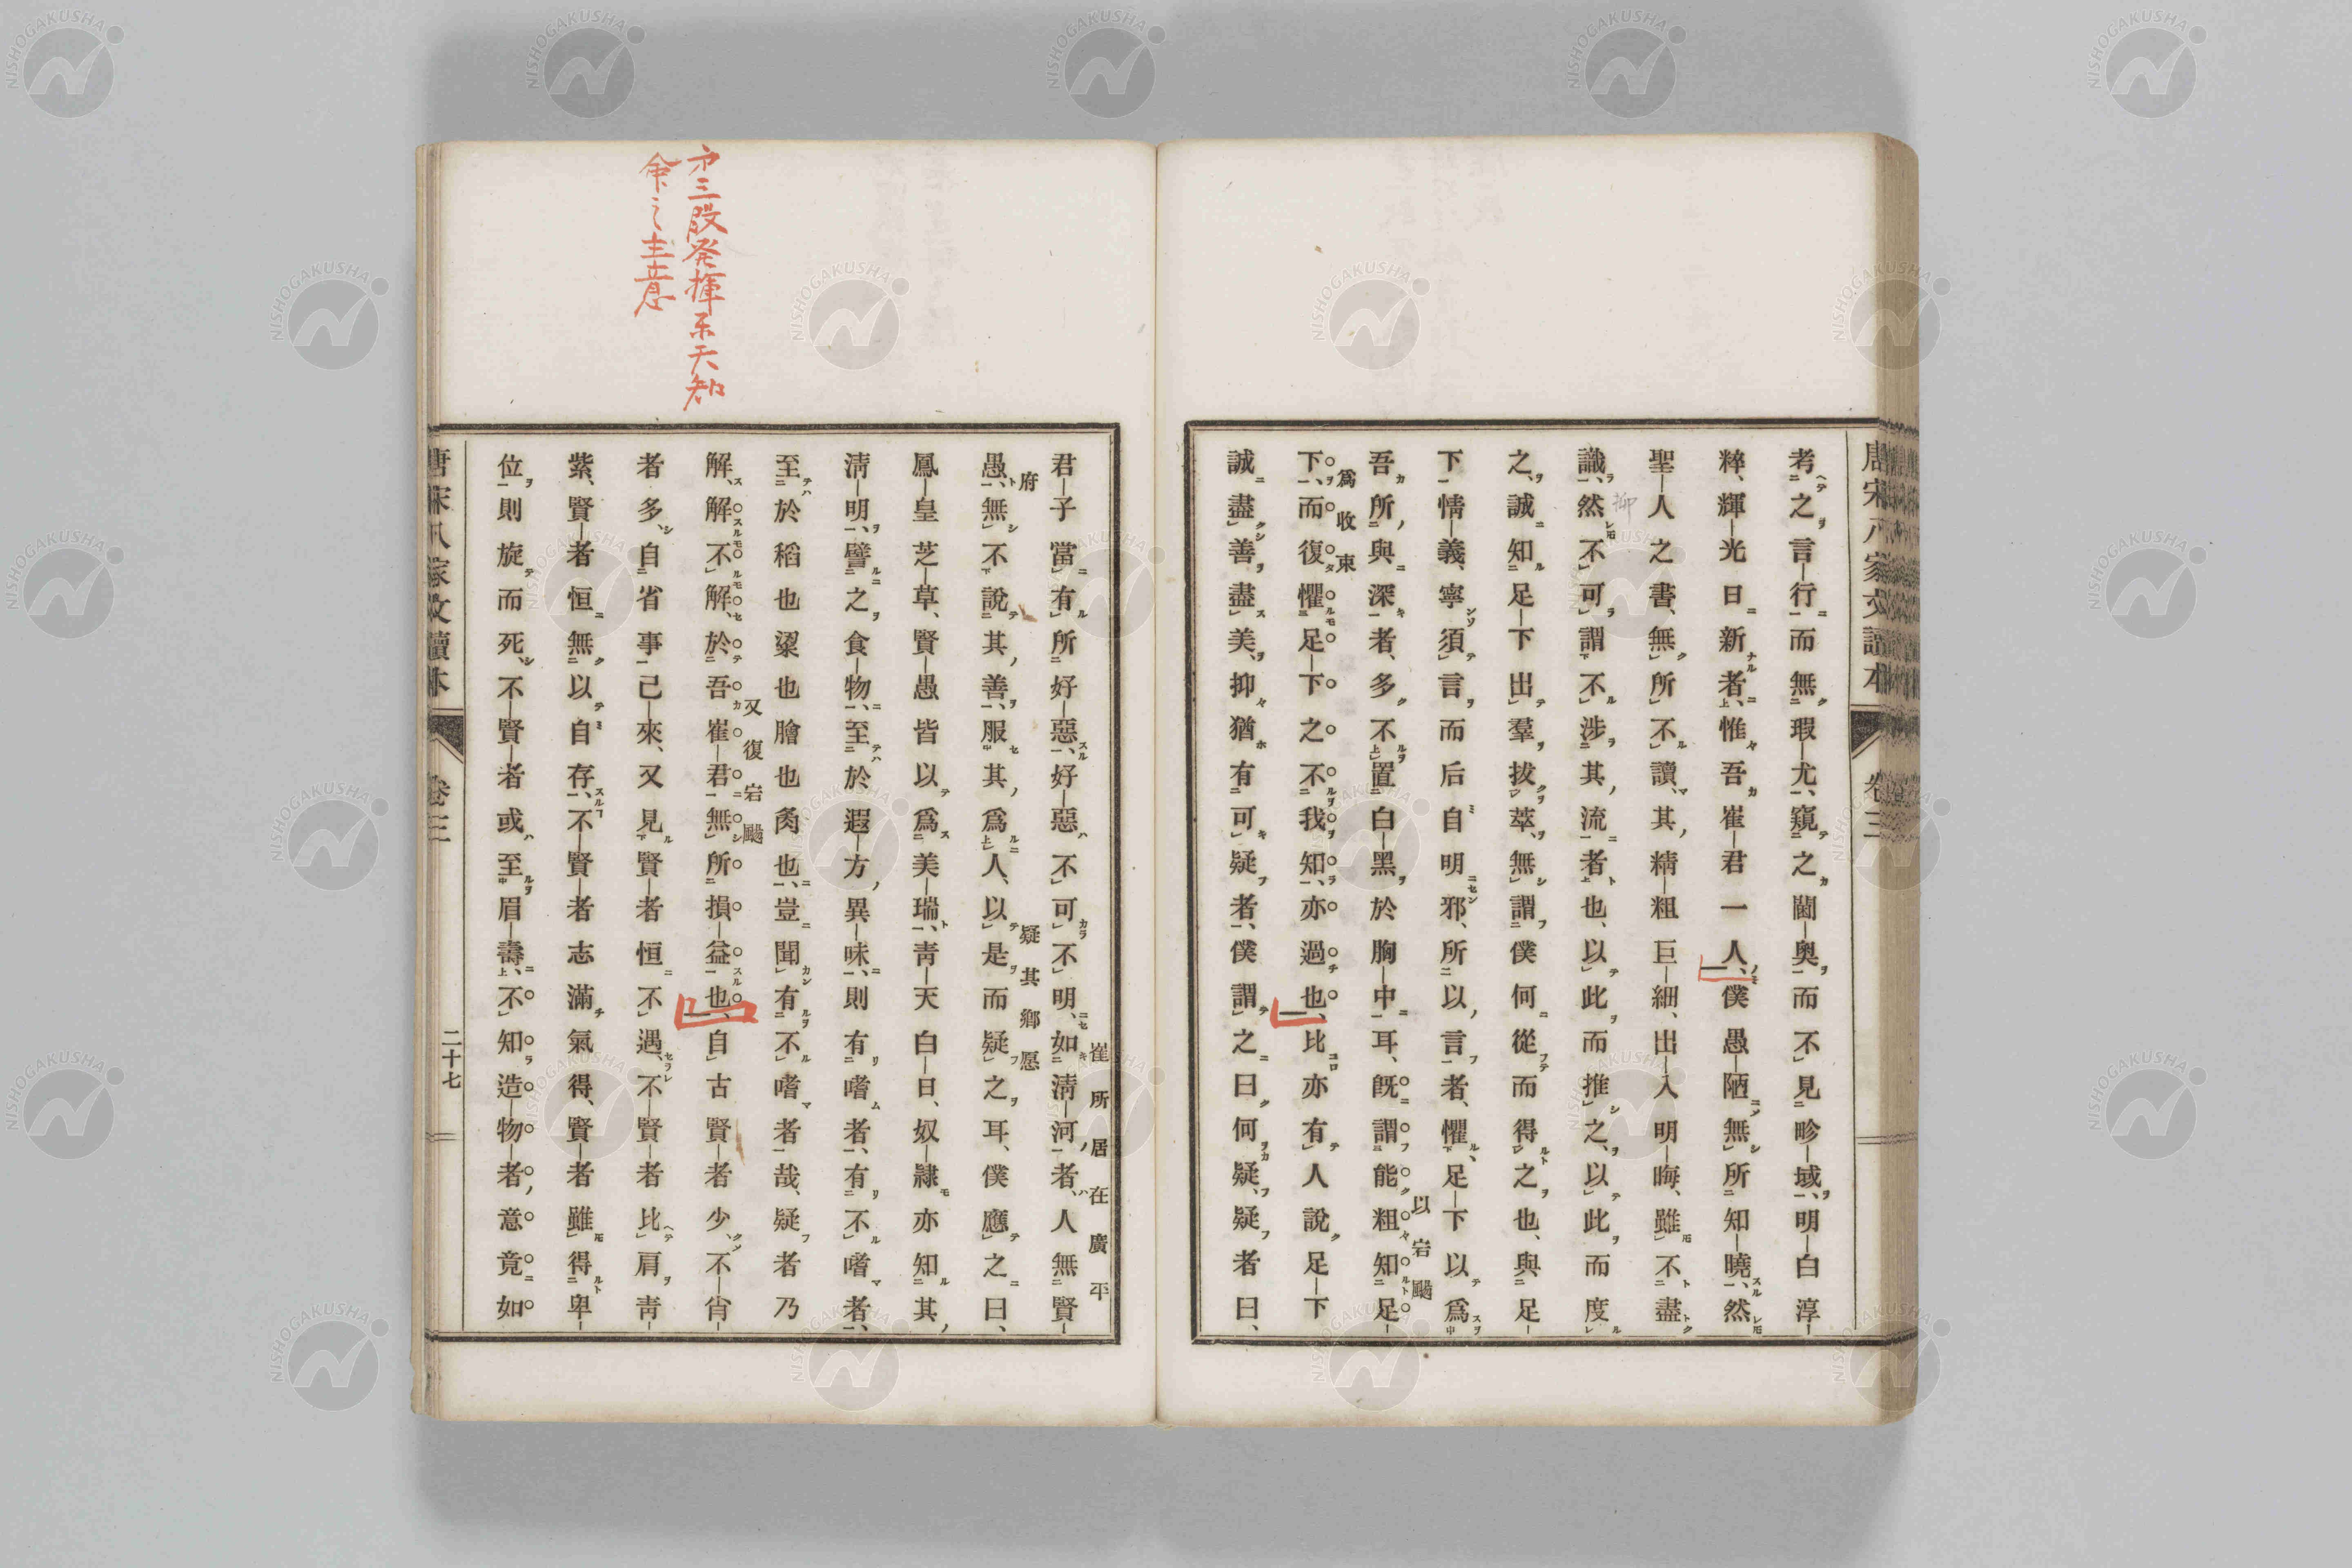 考之言行而無瑕尤、窺之閫奧而不見畛域、明白淳
粹、輝光日新者、惟吾崔君一人、僕愚陋無所知曉、然
聖人之書、無所不讀、其精粗巨細、出入明晦、雖不盡
識、抑
然不可謂不涉其流者也、以此而推之、以此而度
之、誠知足下出羣拔萃、無謂僕何從而得之也、與足
下情義、寧須言而后自明邪、所以言者、懼足下以爲
吾所與深者、多不置白黑於胸中耳、既謂能粗知足
以宕颺
下、而復懼足下之不我知、亦過也、比亦有人說足下
爲收束
誠盡善盡美、抑猶有可疑者、僕謂之曰何疑、疑者曰、
君子當有所好惡、好惡不可不明、如淸河者、人無賢
崔所居在廣平府
愚、無不說其善、服其爲人、以是而疑之耳、僕應之曰、
疑其鄕愿
鳳皇芝草、賢愚皆以爲美瑞、靑天白日、奴隷亦知其
淸明、譬之食物、至於遐方異味、則有嗜者、有不嗜者、
至於稻也粱也膾也炙也、豈聞有不嗜者哉、疑者乃
解、解不解、於吾崔君無所損益也、自古賢者少、不肖
又復宕颺
者多、自省事已來、又見賢者恒不遇、不賢者比肩靑
紫、賢者恒無以自存、不賢者志滿氣得、賢者雖得卑
位則旋而死、不賢者或至眉壽、不知造物者意竟如
唐宋八家文讀本
卷三
二十七
唐宋八家文讀本
卷三
第三段発揮不天知
命之主意